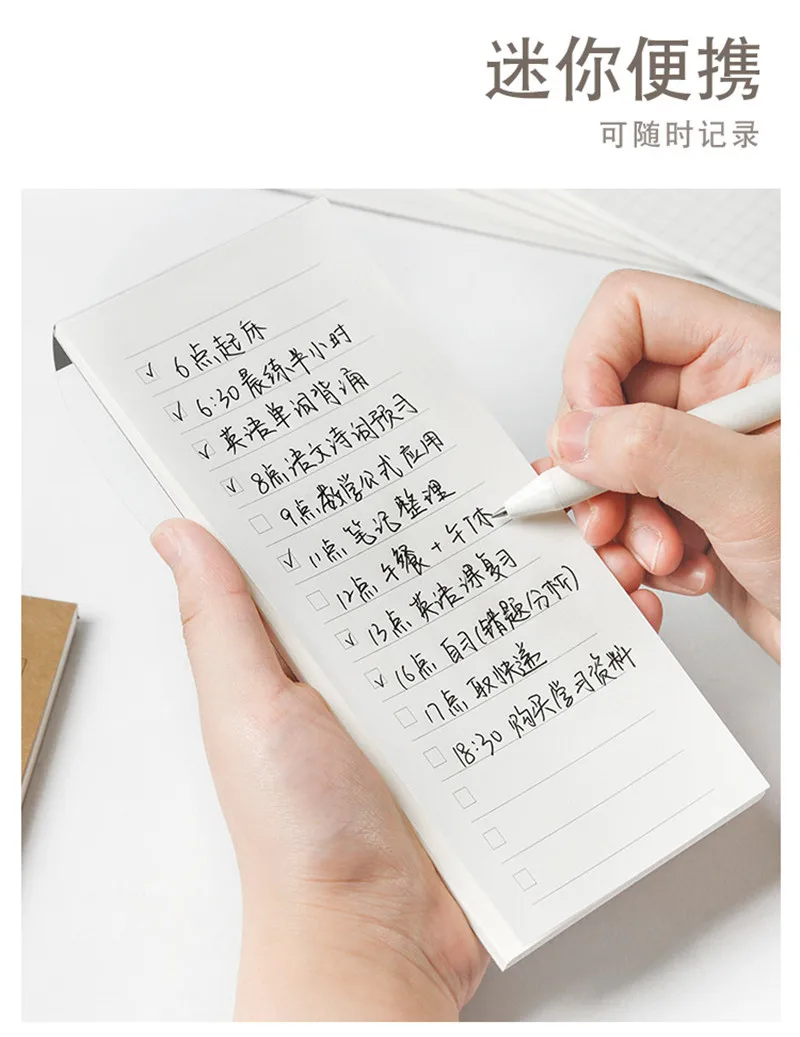 迷你便携
可随时记录
6点起床
6:30晨练半小时
英语单词背诵
8点语文诗词预习
9点数学公式应用
11点笔记整理
12点午餐+午休
13点英语课复习
16点自习(错题分析)
17点取快递
18:30购买学习资料